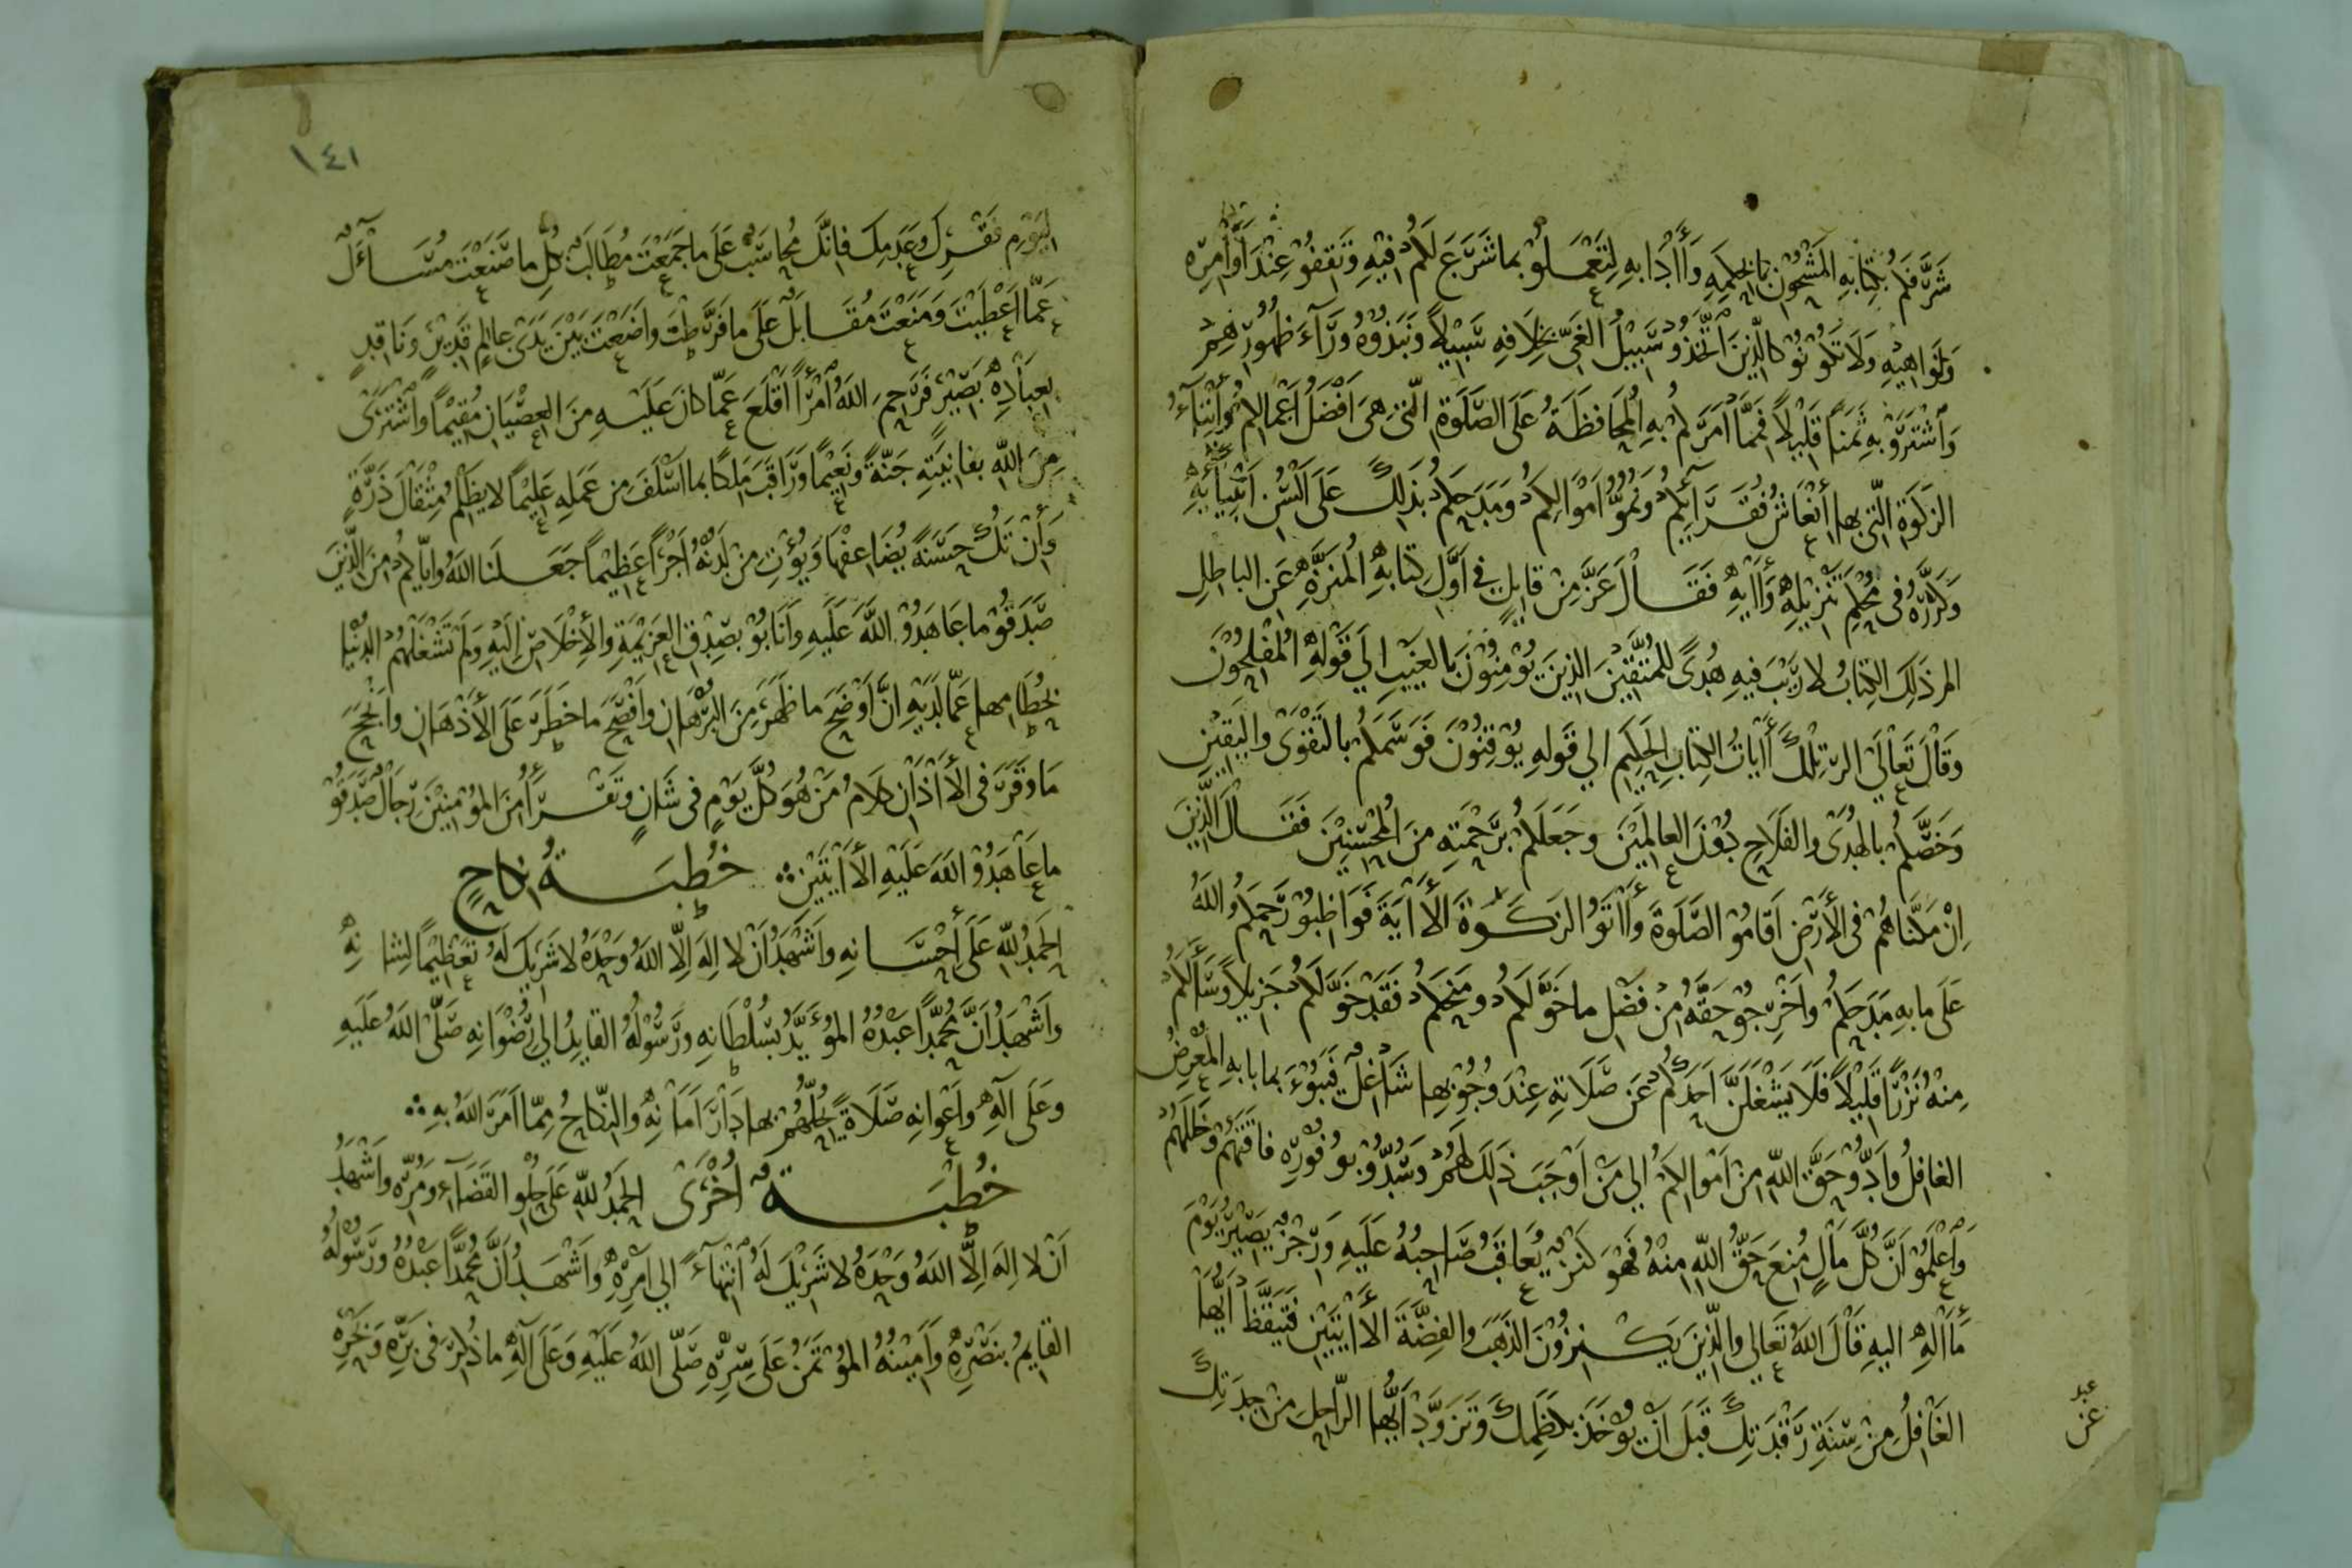 شَرَّفَكُمْ بِكِتَابِهِ المَشْحُونِ بِالحِكْمَةِ وَأَادَابِهِ لِتَعْمَلُوْ بِمَا شَرَّعَ لَكُمْ فِيْهِ وَتَقِفُوْ عِنْدَ أَوَامِرِهِ
وَنَوَاهِيْهِ وَلَا تَكُوْنُوْ كَالَّذِيْنَ اتَّخَذُوْ سَبِيْلَ الغَيِّ بِخِلَافِهِ سَبِيْلاً وَنَبَذُوْهُ وَرَآءَ ظُهُوْرِهِمْ
وَاشْتَرَوْ بِهِ ثَمَناً قَلِيْلاً فَمِمَّا أَمَرَكُمْ بِهِ المُحَافَظَةُ عَلَى الصَّلَوةِ الَّتِيْ هِيَ أَفْضَلُ أَعْمَالِكُمْ وَإِيْتَآءُ
الزَكَوةِ الَّتِيْ بِهَا انْعَاشُ فُقَرَآئِكُمْ وَنُمُوُّ أَمْوَالِكُمْ وَمَدَحَكُمْ بِذَلِكَ عَلَى أَلْسُنِ أَنْبِيَآئِهِ
وَكَرَّرَهُ فِيْ مُحْكَمِ تَنْزِيْلِهِ وَأَايِهِ فَقَالَ عَزَّ مِنْ قَايِلٍ فِي أَوَّلِ كِتَابِهِ المُنَزَّهِ عَنِ البَاطِلِ
الم ذَلِكَ الكِتَابُ لَا رَيْبَ فِيهِ هُدًى لِلْمُتَّقِيْنَ الَّذِيْنَ يُؤْمِنُوْنَ بِالغَيْبِ الَى قَوْلِهِ المُفْلِحُوْنَ
وَقَالَ تَعَالَى الر تِلْكَ أَايَاتُ الكِتَابِ الحَكِيْمِ الَى قَوْلِهِ يُوْقِنُوْنَ فَوَسَمَكُمْ بِالتَقْوَى وَاليَقِيْنِ
وَخَصَّكُمْ بِالهُدَى وَالفَلَاحِ دُوْنَ العَالَمِيْنَ وَجَعَلَكُمْ بِرَحْمَتِهِ مِنَ المُحْسِنِيْنَ فَقَالَ الَّذِيْنَ
اِنْ مَكَّنَّاهُمْ فِي الأَرْضِ أَقَامُوْ الصَّلَوةَ وَأَاتَوُ الزَكَوةَ الأَايَةَ فَوَاظِبُوْ رَحِمَكُمُ اللهُ
عَلَى مَا بِهِ مَدَحَكُمْ وَأَخْرِجُوْ حَقَّهُ مِنْ فَضْلِ مَا خَوَّلَكُمْ وَمَنَحَكُمْ فَقَدْ خَوَّلَكُمْ جَزِيْلاً وَسَأَلَكُمْ
مِنْهُ نَزْرًا قَلِيْلاً فَلَا يَشْغَلَنَّ أَحَدَكُمْ عَنْ صَلَاتِهِ عِنْدَ وُجُوْبِهَا شَاغِلٌ فَيَبُوْءَ بِمَا بَا بِهِ المُعْرِضُ
الغَافِلُ وَأَدُّوْ حَقَّ اللهِ مِنْ أَمْوَالِكُمْ اِلَى مَنْ أَوْجَبَ ذَلِكَ لَهُمْ وَسُدُّوْ بِوُفُوْرِهِ فَاقَتَهُمْ وَخَلَلَهُمْ
وَاعْلَمُوْ أَنَّ كُلَّ مَالٍ مُنِعَ حَقُّ اللهِ مِنْهُ فَهُوَ كَنْزٌ يُعَاقَبُ صَاحِبُهُ عَلَيْهِ وَرِجْزٌ يَصِيْرُ يَوْمَ
مَأَالِهِ اِلَيْهِ قَالَ اللهُ تَعَالَى وَالَّذِيْنَ يَكْنِزُوْنَ الذَهَبَ وَالفِضَّةَ الأَايَتَيْنِ فَتَيَقَّظْ أَيُّهَا
الغَافِلُ مِنْ سِنَةِ رَقْدَتِكَ قَبْلَ أَنْ يُوْخَذَ بِكَظَمِكَ وَتَزَوَّدْ أَيُّهَا الرَّاحِلُ مِنْ جِدَتِكَ
عن
١٤١
لِيَوْمِ فَقْرِكَ وَعَدَمِكَ فَاِنَّكَ مُحَاسَبٌ عَلَى مَا جَمَعْتَ مُطَالَبٌ بِكُلِّ مَا صَنَعْتَ مُسَاْءَلٌ
عَمَّا أَعْطَيْتَ وَمَنَعْتَ مُقَابَلٌ عَلَى مَا فَرَّطْتَ وَاضَعْتَ بَيْنَ يَدَيْ عَالِمٍ قَدِيْرٍ وَنَاقِدٍ
بِعِبَادِهِ بَصِيْرٍ فَرَحِمَ اللهُ امْرَأً أَقْلَعَ عَمَّا كَانَ عَلَيْهِ مِنَ العِصْيَانِ مُقِيْمًا وَاشْتَرَى
مِنَ اللهِ بِفَانِيَتِهِ جَنَّةً وَنَعِيْمًا وَرَاقَبَ مَلِكًا بِمَا أَسْلَفَ مِنْ عَمَلِهِ عَلِيْمًا لَا يَظْلِمُ مِثْقَالَ ذَرَّةٍ
وَأَنْ تَكُ حَسَنَةً يُضَاعِفْهَا وَيُؤْتِ مِنْ لَدُنْهُ أَجْراً عَظِيْماً جَعَلَنَا اللهُ وَايَّاكُمْ مِنَ الَّذِيْنَ
صَدَقُوْ مَا عَاهَدُوْ اللهَ عَلَيهِ وَأَنَابُوْ بِصِدْقِ العَزِيْمَةِ وَالأِخْلَاصِ اِلَيْهِ وَلَمْ تَشْغَلْهُمُ الدُنْيَا
بِحُطَامِهَا عَمَّا لَدَيْهِ اِنَّ أَوْضَحَ مَا ظَهَرَ مِنَ البُرْهَانِ وَأَفْصَحَ مَا خَطَرَ عَلَى الأَذْهَانِ وَأَنْجَحَ
مَا وَقَرَ فِي الأَاذَانِ كَلَامُ مَنْ هُوَ كُلَّ يَوْمٍ فِي شَانٍ وَتَقْرَأُ مِنَ المُؤْمِنِيْنَ رِجَالٌ صَدَقُوْ
مَا عَاهَدُوْ اللهَ عَلَيْهِ الأَايَتَيْنِ ۞ خُطْبَةُ نِكَاحٍ
الحَمْدُ لِلّهِ عَلَى اِحْسَانِهِ وَأَشْهَدُ أَنْ لَا اِلَهَ اِلَّا اللهُ وَحْدَهُ لَا شَرِيْكَ لَهُ تَعْظِيْمًا لِشَانِهِ
وَأَشْهَدُ أَنَّ مُحَمَّدًا عَبْدُهُ المُؤَيَّدُ بِسُلْطَانِهِ وَرَسُوْلُهُ القَايِدُ اِلَى رِضْوَانِهِ صَلَّى اللهُ عَلَيهِ
وَعَلَى آلِهِ وَأَعْوَانِهِ صَلَاةً يُحِلُّهُمْ بِهَا دَارَ أَمَانِهِ وَالنِّكَاحُ مِمَّا أَمَرَ اللهُ بِهِ ۞
خُطْبَةٌ أُخْرَى الحَمْدُ لِلّهِ عَلَى حُلْوِ القَضَآءِ وَمُرِّهِ وَأَشْهَدُ
أَنْ لَا اِلَهَ اِلَّا اللهُ وَحْدَهُ لَا شَرِيْكَ لَهُ انْتِهَآءً اِلَى أَمْرِهِ وَأَشْهَدُ أَنَّ مُحَمَّدًا عَبْدُهُ وَرَسُوْلُهُ
القَايِمُ بِنَصْرِهِ وَأَمِيْنُهُ المُؤْتَمَنُ عَلَى سِرِّهِ صَلَّى اللهُ عَلَيْهِ وَعَلَى آلِهِ مَا ذُكِرَ فِي بَرِّهِ وَبَحْرِهِ